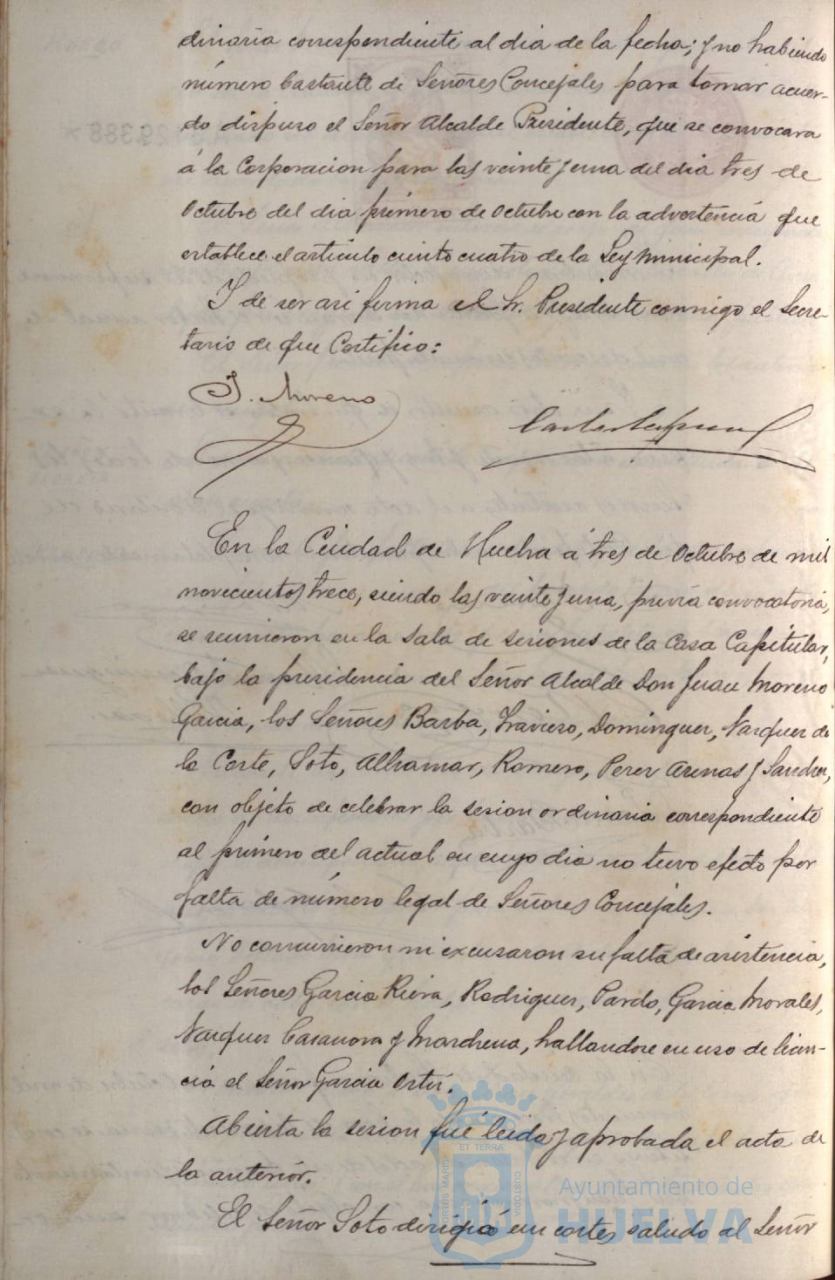 dinaria correspondiente al dia de la fecha; y no habiendo
número bastante de Señores Concejales para tomar acuer-
do dispuso el Señor Alcalde Presidente, que se convocara
á la Corporacion para las veinte y una del dia tres de
Octubre del dia primero de Octubre con la advertencia que
establece el artículo ciento cuatro de la Ley Municipal.
Y de ser asi firma el Sr. Presidente conmigo el Secre-
tario de que Certifico:
J. Moreno
En la Ciudad de Huelva á tres de Octubre de mil
novecientos trece, siendo las veinte y una, previa convocatoria,
se reunieron en la Sala de sesiones de la Casa Capitular,
bajo la presidencia del Señor Alcalde Don Juan Moreno
Garcia, los Señores Barba, Traviero, Dominguez, Vazquez de
la Corte, Soto, Alhamar, Romero, Perez Arenas y Sanchez,
con objeto de celebrar la sesion ordinaria correspondiente
al primero del actual en cuyo dia no tuvo efecto por
falta de número legal de Señores Concejales.
No concurrieron ni excusaron su falta de asistencia,
los Señores Garcia Riera, Rodriguez, Pardo, Garcia Morales,
Vazquez Casanova y Marchena, hallandose en uso de licen-
cia el Señor Garcia Ortiz.
Abierta la sesion fué leida y aprobada el acta de
la anterior.
El Señor Soto dirigió un cortes saludo al Señor
Ayuntamiento de
HUELVA